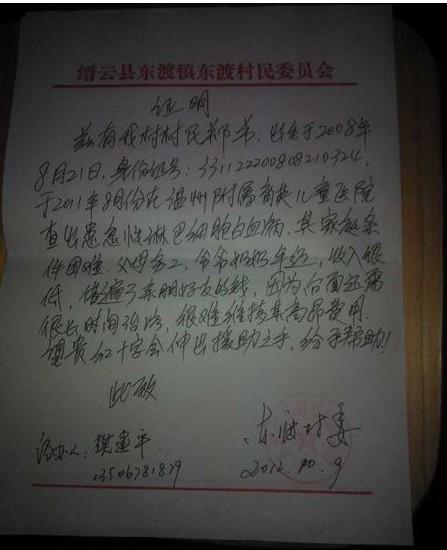 缙云县东渡镇东渡村民委员会
证明
兹有我村村民郑弟,出生于2008年
8月21日,身份证号:331122200808210324,
于2011年8月份在温州附属育英儿童医院
查出患急性淋巴细胞白血病,其家庭条
件困难.父母务工,爷爷奶奶年迈,收入很
低,借遍了亲朋好友的钱,因为后面还需
很长时间治疗,很难维持其高昂费用.
望贵红十字会伸出援助之手,给予帮助!
此致
经办人:樊建平
13506781829
东渡村委
2012.10.9